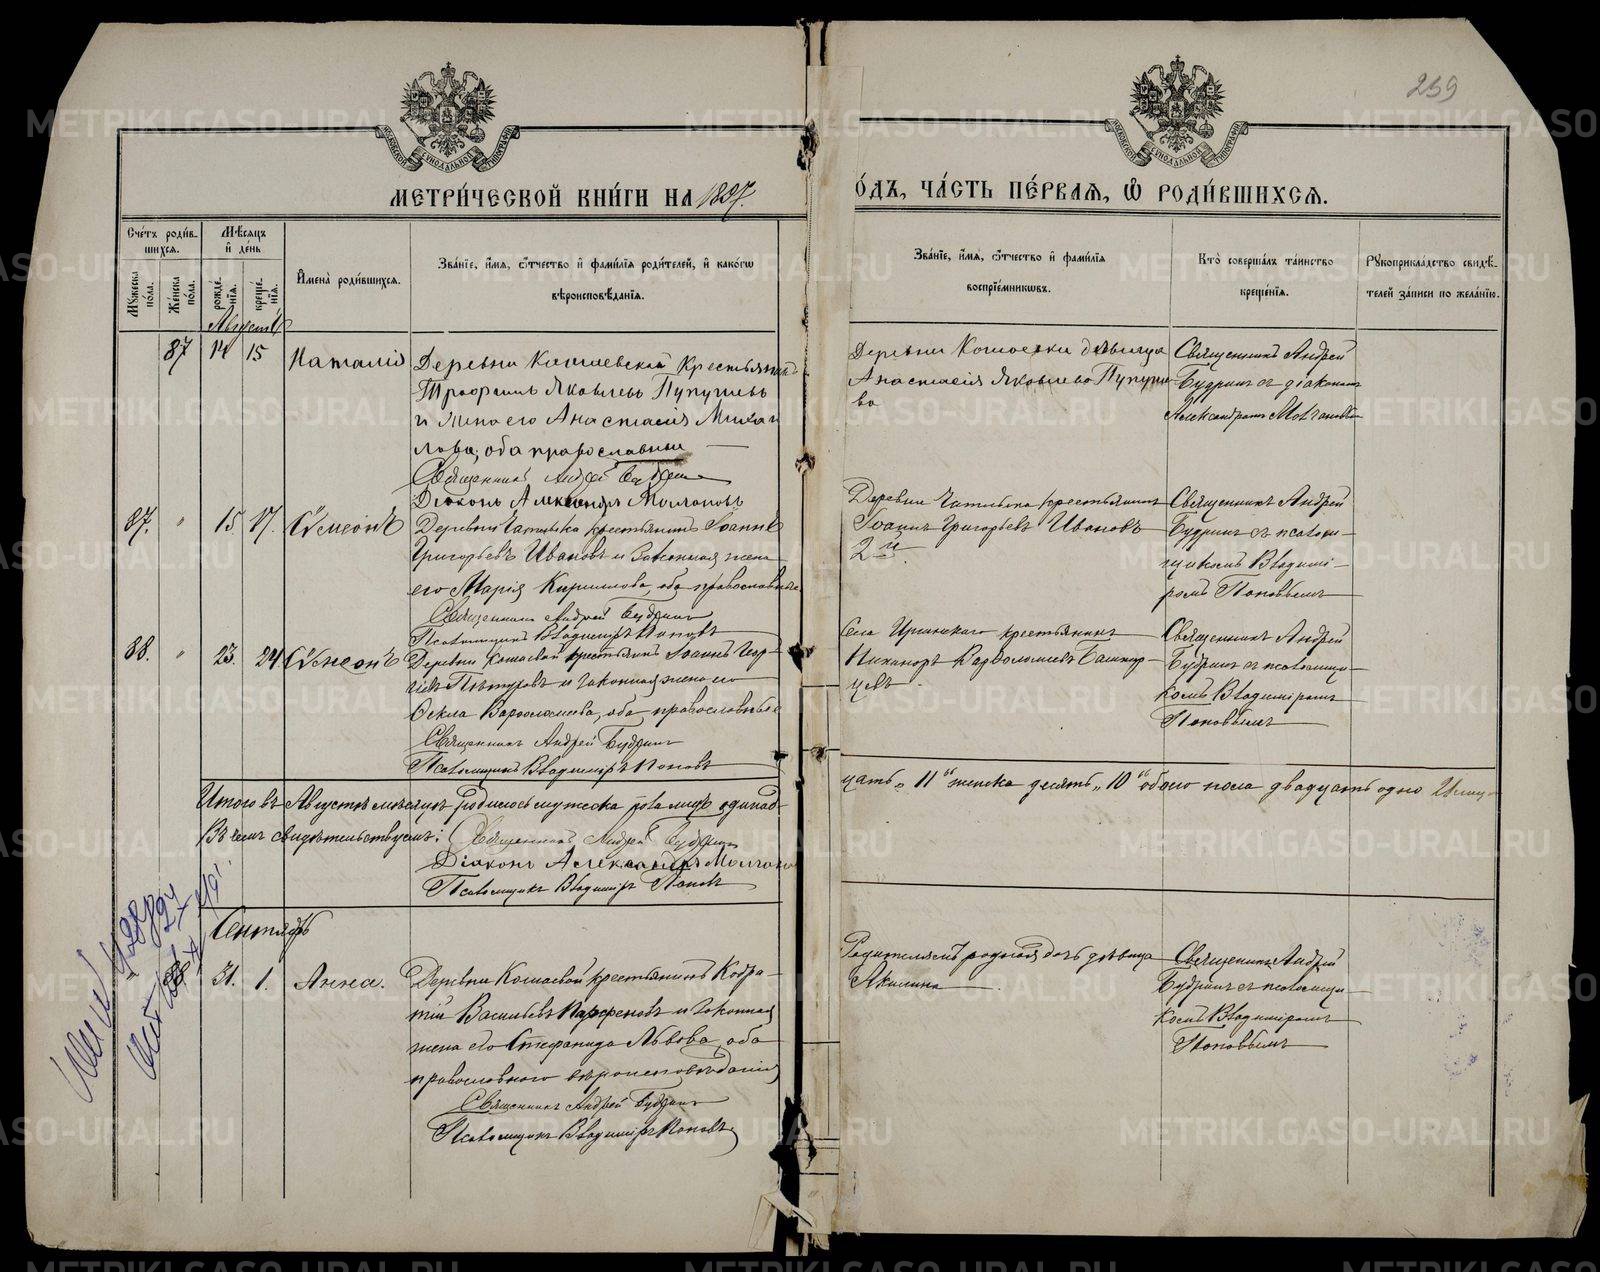 259
МОСКОВСКОЙ СѴНОДАЛЬНОЙ ТИПОГРАФІИ
МОСКОВСКОЙ СѴНОДАЛЬНОЙ ТИПОГРАФІИ
МЕТРИ́ЧЕСКОЙ КНИ́ГИ НА 1897.
О́ДЪ, ЧА́СТЬ ПЕ́РВАЯ, Ѽ РОДИ́ВШИХСѦ.
Сче́тъ роди́в-
шихсѧ.
Мѣ́сѧцъ
и҆ де́нь
Мꙋ́жеска по́ла.
Же́нска по́ла.
рожде́-нїѧ.
креще́-нїѧ.
И҆мена̀ роди́вшихсѧ.
Зва́нїе, и҆́мѧ, ѻ҆́тчество и҆ фами́лїѧ роди́телей, и҆ како́гѡ
вѣроисповѣ́данїѧ.
Зва́нїе, и҆́мѧ, ѻ҆́тчество и҆ фами́лїѧ
воспрїе́мникѡвъ.
Кто̀ соверша́лъ та́инство
креще́нїѧ.
Рꙋкоприкла́дство свидѣ́-
телей за́писи по жела́нїю.
Августъ
87 14 15 Наталія
Деревни Кошаевской Крестьянинъ
Трофимъ Яковлевъ Пупышевъ
и жена его Анастасія Михаи
лова, оба православные
Священникъ Андрей Будринъ
Діаконъ Александръ Молчановъ
Деревни Кошаевки дѣвица
Анастасія Яковлева Пупыше
ва
Священникъ Андрей
Будринъ съ діакономъ
Александромъ Молчановымъ
87. " 15. 17. Сѵмеонъ
Деревни крестьянинъ Іоаннъ
Григорьевъ Ивановъ и законная жена
его Марія Кириллова, оба православные
Священникъ Андрей Будринъ
Псаломщикъ Владиміръ Поповъ
Деревни крестьянинъ
Іоаннъ Григорьевъ Ивановъ
2й
Священникъ Андрей
Будринъ съ псалом-
щикомъ Владимі-
ромъ Поповымъ
88. " 23. 24 Сѵмеонъ
Деревни Кошаевой крестьянинъ Іоаннъ Геор-
гіевъ и законная жена его
Ѳекла Варѳоломеева, оба православные
Священникъ Андрей Будринъ
Псаломщикъ Владиміръ Поповъ
Села Иргинскаго крестьянинъ
Никаноръ Варѳоломеевъ Башкир-
цевъ
Священникъ Андрей
Будринъ съ псаломщи-
комъ Владиміромъ
Поповымъ
Итого въ Августѣ мѣсяцѣ родилось мужеска пола одинад-
цать "11" женска десять "10" обоего пола двадцать одно 21
В чемъ свидѣтельствуемъ: Священникъ Андрей Будринъ
Діаконъ Александръ Молчановъ
Псаломщикъ Владиміръ Поповъ
Сентябрь
88 31. 1. Анна.
Деревни Кошаевой крестьянинъ Кодра-
тій Васильевъ Парфеновъ и законная
жена его Стефанида Львова, оба
православнаго вѣроисповѣданія
Священникъ Андрей Будринъ
Псаломщикъ Владиміръ Поповъ
Родителямъ родная дочь дѣвица
Акилина
Священникъ Андрей
Будринъ съ псаломщи-
комъ Владиміромъ
Поповымъ
METRIKI.GASO-URAL.RU